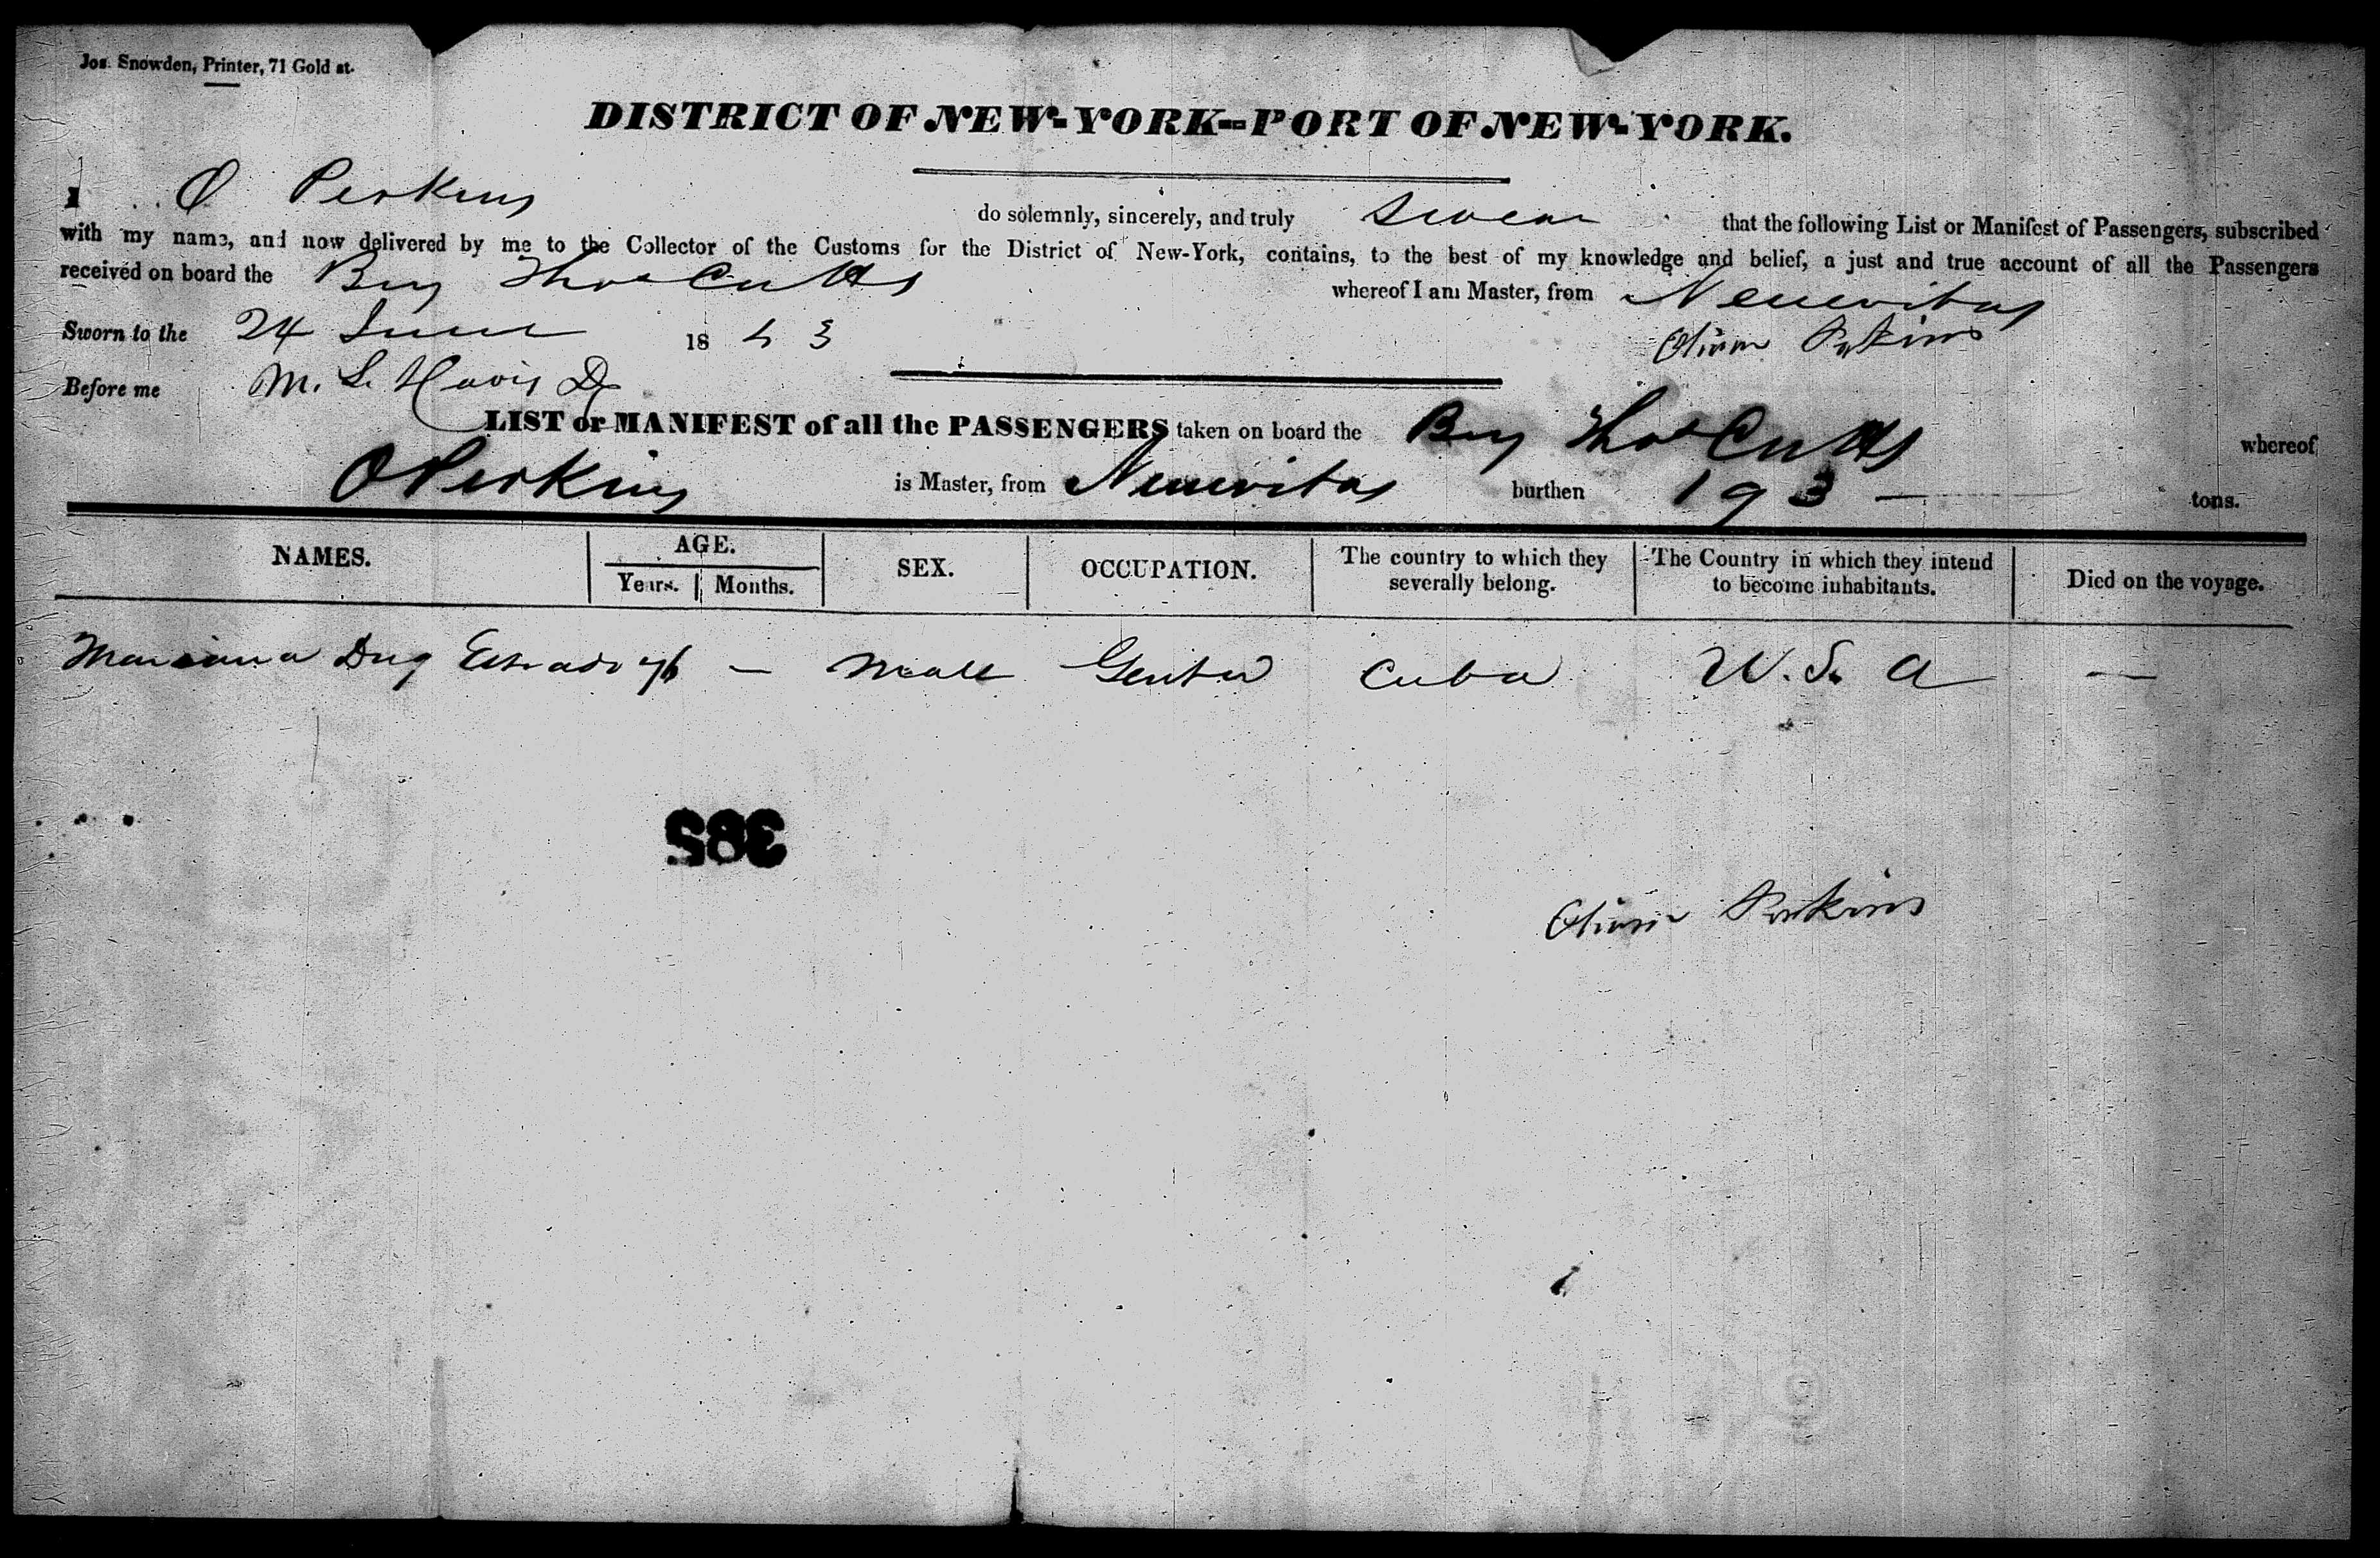 Jos. Snowden, Printer, 71 Gold st.
DISTRICT OF NEW-YORK--PORT OF NEW-YORK.
I O Perkins do solemnly, sincerely, and truly swear that the following List or Manifest of Passengers, subscribed
with my name, and now delivered by me to the Collector of the Customs for the District of New-York, contains, to the best of my knowledge and belief, a just and true account of all the Passengers
received on board the Brig Thos Cutts whereof I am Master, from Neuevitas
Sworn to the 24 June 1843 Oliver Perkins
Before me M. L. Davis
LIST or MANIFEST of all the PASSENGERS taken on board the Brig Thos Cutts whereof
O Perkins is Master, from Neuevitas burthen 193 — tons.
NAMES. AGE. Years. Months. SEX. OCCUPATION. The country to which they severally belong. The Country in which they intend to become inhabitants. Died on the voyage.
Mariana Duq Estrado — Male Cuba U. S. A —
385
Oliver Perkins